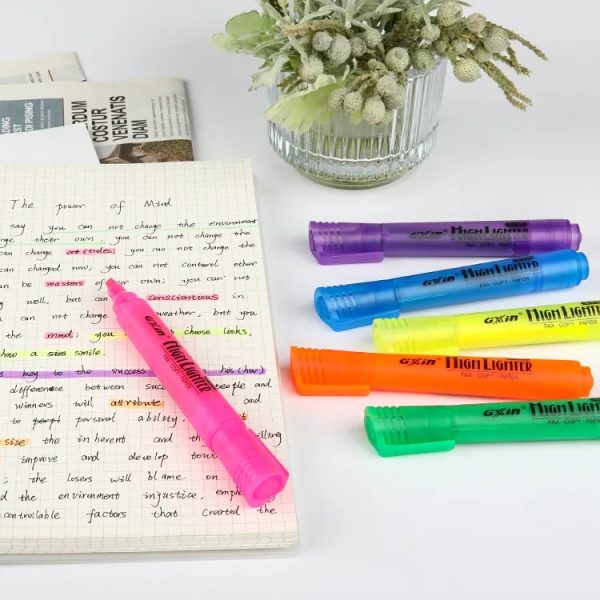 DUM
COSTUR
VENENATIS
DIAM
The power of Mind
say you can not change the environment
change their own, you can not change the
can change attitudes; you can not change the
can changed now; you can not control other
be masters of our own; you can not
well, but can conscientious in
not change the weather, but you
the mood; you choose looks,
how a smile.
key to the success
difference between people and
winners will attribute
to personal ability.
size the inherent and the
improve and develop
the losers will blame on
the environment injustice,
controllable factors that created the
GXIN HIGHLIGHTER
FAX COPY PAPER
GXIN HIGHLIGHTER
FAX COPY PAPER
GXIN HIGHLIGHTER
FAX COPY PAPER
GXIN HIGHLIGHTER
FAX COPY PAPER
GXIN HIGHLIGHTER
FAX COPY PAPER
GXIN HIGHLIGHTER
FAX COPY PAPER